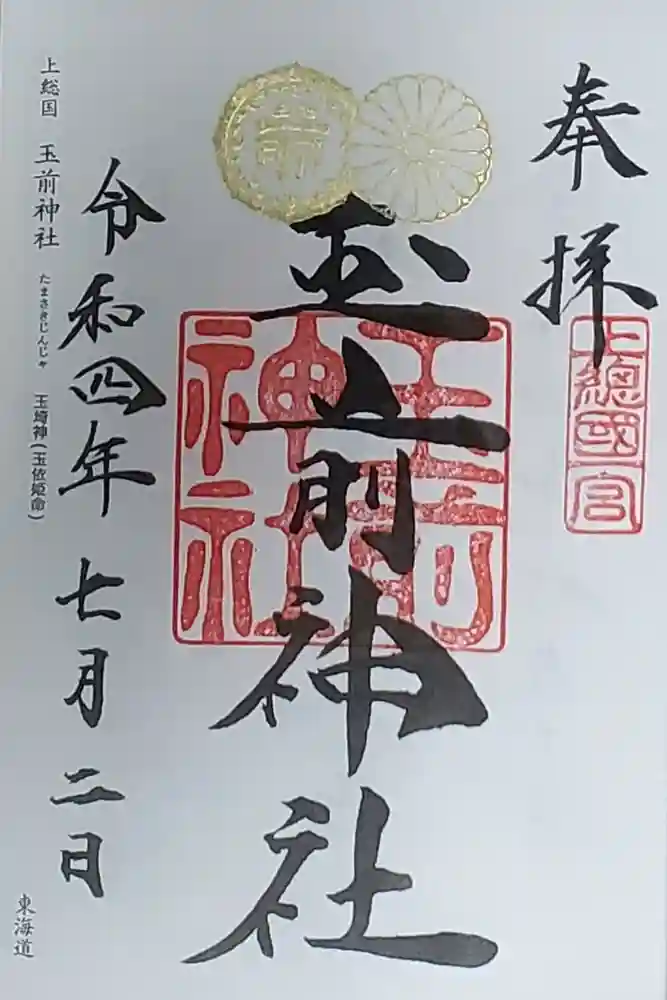 奉拝
上總國一宮
玉前神社
玉前神社
令和四年七月二日
上総国 玉前神社 たまさきじんじゃ 玉埼神(玉依姫命)
東海道